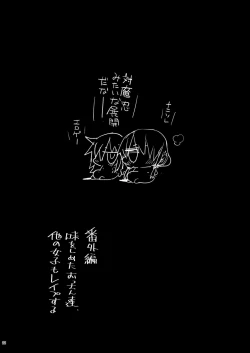 対魔忍
みたいな展開
だな
エロゲー
番外編
味をしめたお犬達、
他の女子もレイプする